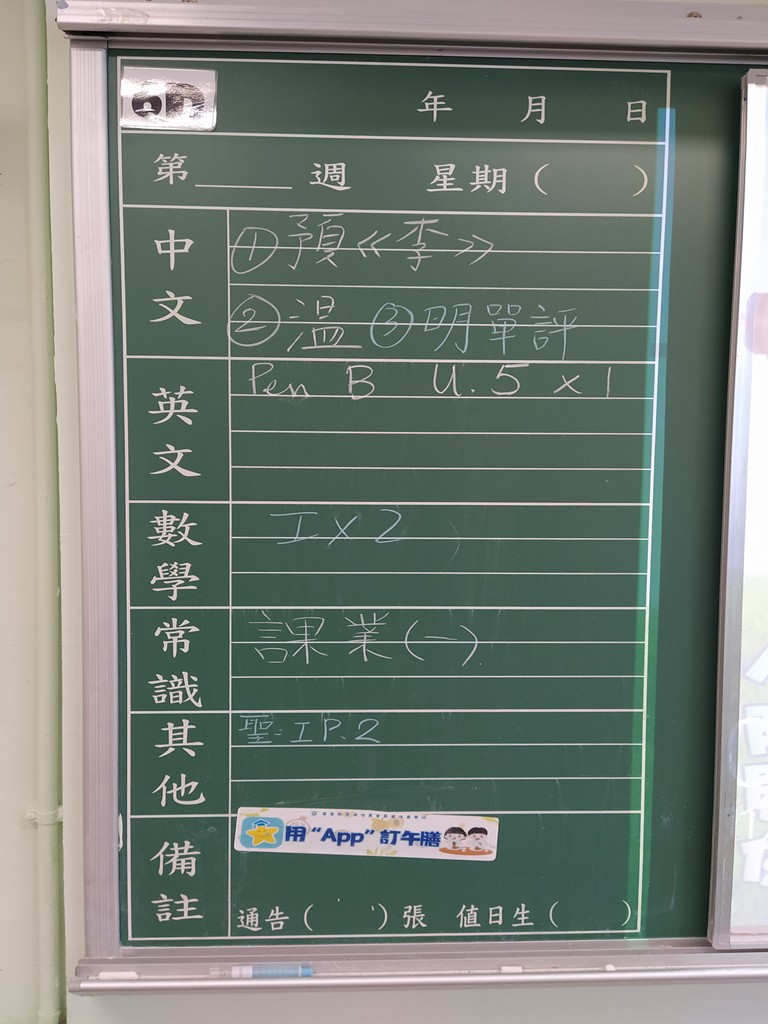 年 月 日
第____週 星期( )
中文
①預《李》
②溫 ③明單評
英文
Pen B U.5 x 1
數學
工 x 2
常識
課業(一)
其他
聖:工 P.2
備註
用“App”訂午膳
通告( )張 值日生( )